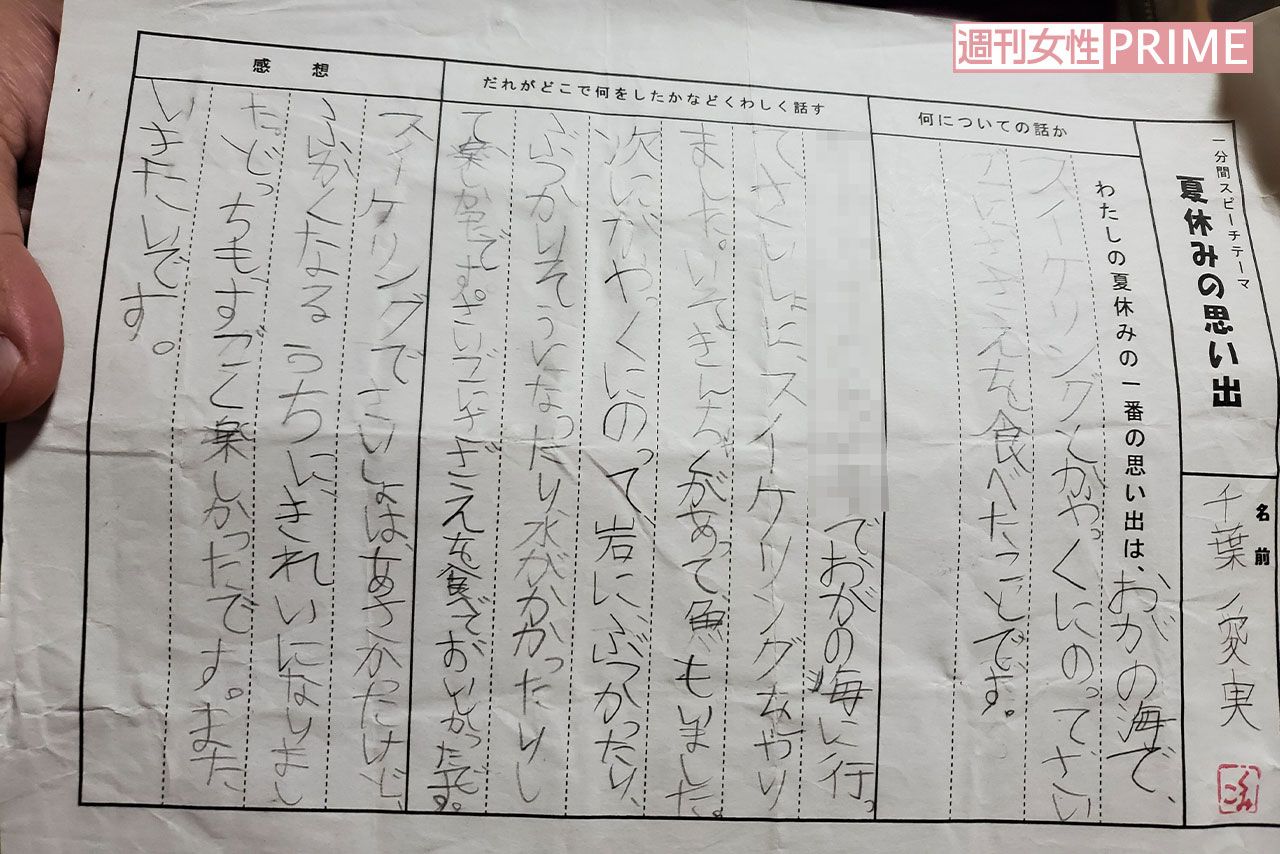 週刊女性PRIME
一分間スピーチテーマ
夏休みの思い出
名前
千葉 愛実
何についての話か
わたしの夏休みの一番の思い出は、おがの海で、
スイケリングとかやっくにのってさい
ごにさざえを食べたことです。
だれがどこで何をしたかなどくわしく話す
でおがの海に行っ
てさいしょにスイケリングをやり
ました。いそぎんちゃくがあって魚もいました。
次にがやっくにのって、岩にぶつかったり、
ぶつかりそうになったり水がかかったりし
て楽しかたです。さいごにさざえを食べておいしかったです。
感想
スイケリングでさいしょは、あさかったけど、
ふかくなるうちにきれいになりまし
た。どっちも、すごく楽しかったです。また
いきたいです。